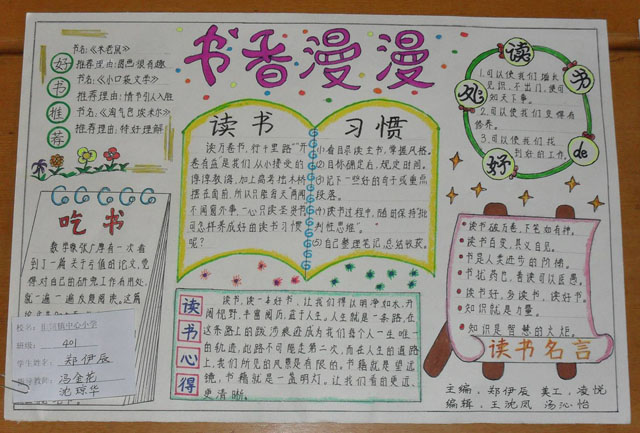 书香漫漫
好书推荐
书名:《木老鼠》
推荐理由:圆熟很有趣
书名:《小口袋文学》
推荐理由:情节引人入胜
书名:《淘气包埃米尔》
推荐理由:特好理解
读书 习惯
读万卷书,行千里路”开
卷有益是我们从小接受的
谆谆教诲,加上高考独木桥
摆在面前,所以只能每天两闻
不闻窗外事,一心只读圣贤书
可怎样养成好的读书习惯
呢?
(1)看目录读主书,掌握风格。
(2)目标确定后,规定时间。
(3)记下一些好的句子或重点
段落。
(4)读书过程中,随时保持“批
判性思维”。
(5)自己整理笔记,总结收获。
读书 de 好处
1.可以使我们增长
见识,不出门,便可
知天下事。
2.可以使我们变得有
修养。
3.可以使我们找
到好的工作。
吃书
数学家张广厚有一次看
到了一篇关于亏值的论文,觉
得对自己的研究工作有用处,
就一遍一遍反复阅读。这篇
校名:中心小学
班级:401
学生姓名:郑伊辰
指导教师:冯金花
沈琼华
读书心得
读书,读一本好书,让我们得以明净如水,开
阔视野,丰富阅历,益于人生。人生就是一条路,在
这条路上的跋涉痕迹成为我们每个人一生唯一
的轨迹,此路不可能走第二次,而在人生的道路
上,我们所见的风景是有限的。书籍就是望远
镜,书籍就是一盏明灯,让我们看的更远、
更清晰。
读书破万卷,下笔如有神。
读书百变,其义自见。
书是人类进步的阶梯。
书犹药也,善读可以医愚。
读书好,多读书,读好书。
知识就是力量。
知识是智慧的火炬。
读书名言
主编:郑伊辰 美工:凌悦
编辑:王沈凤 汤沁怡